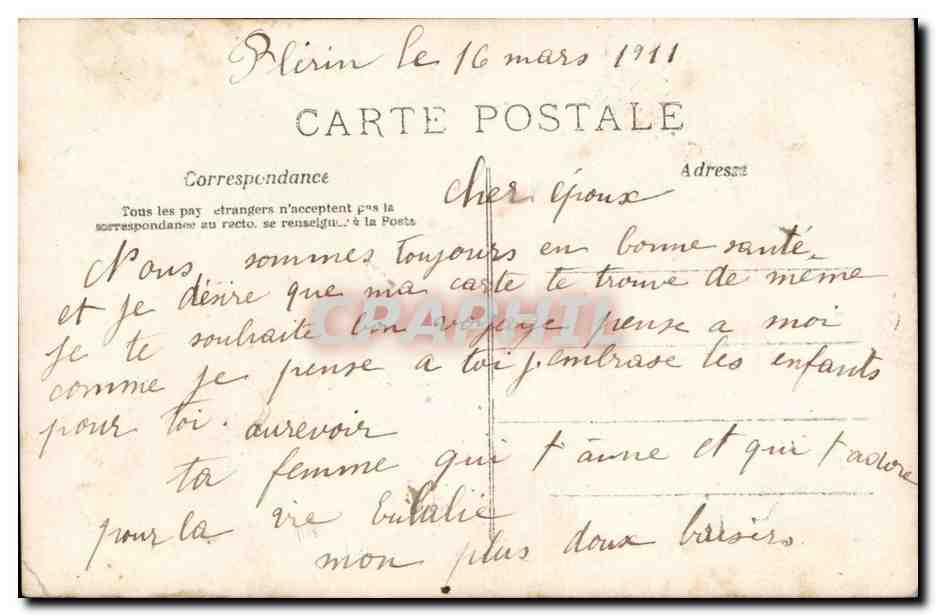 Plérin le 16 mars 1911
CARTE POSTALE
Correspondance
Adresse
Tous les pay etrangers n'acceptent pas la
correspondance au recto. se renseigne. à la Poste
cher époux
Nous sommes toujours en bonne santé.
et je désire que ma carte te trouve de même
je te souhaite bon voyage pense a moi
comme je pense a toi j.embrase les enfants
pour toi. aurevoir
ta femme qui t aime et qui t adore
pour la vie Eulalie
mon plus doux baisers
CPAPHIL